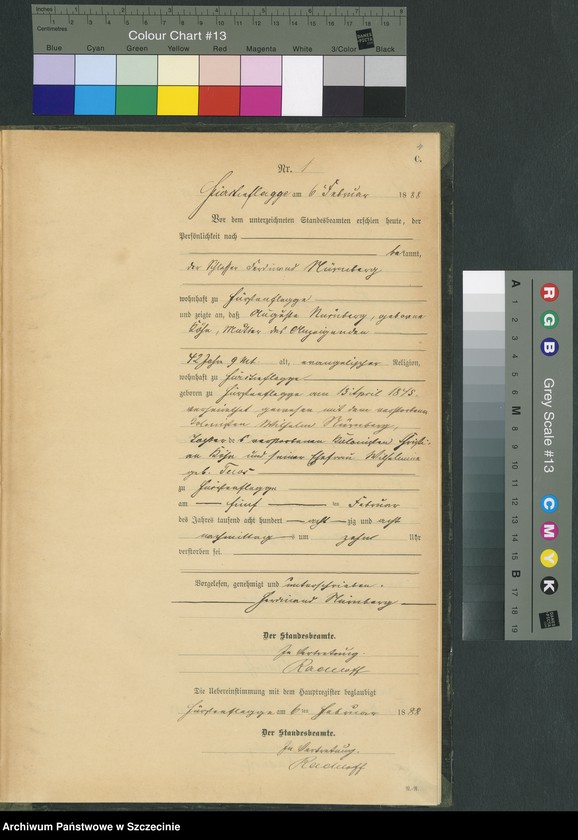 Inches 1 2 3 4 5 6 7 8
Centimetres 1 2 3 4 5 6 7 8 9 10 11 12 13 14 15 16 17 18 19
Colour Chart #13
Blue Cyan Green Yellow Red Magenta White 3/Color Black
C.
Nr. 1
Fürstenflagge am 6 Februar 1888
Vor dem unterzeichneten Standesbeamten erschien heute, der
Persönlichkeit nach
bekannt,
der Schlosser Ferdinand Nürnberg
wohnhaft zu Fürstenflagge
und zeigte an, daß Auguste Nürnberg, geborene
Köhn, Mutter des Anzeigenden
42 Jahr 9 Mt alt, evangelischer Religion,
wohnhaft zu Fürstenflagge
geboren zu Fürstenflagge am 15 April 1845.
verheirathet gewesen mit dem verstorbenen
Wilhelm Nürnberg,
Tochter des verstorbenen Kolonisten
Köhn und seiner Ehefrau Wilhelmine
geb.
zu Fürstenflagge
am fünf ten Februar
des Jahres tausend acht hundert acht zig und acht
nachmittag s um zehn Uhr
verstorben sei.
Vorgelesen, genehmigt und unterschrieben.
Ferdinand Nürnberg
Der Standesbeamte.
In Vertretung.
Radloff
Die Uebereinstimmung mit dem Hauptregister beglaubigt
Fürstenflagge am 6 ten Februar 1888
Der Standesbeamte.
In Vertretung.
Radloff
Grey Scale #13
R G B C M Y K
A 1 2 3 4 5 6 M 8 9 10 11 12 13 14 15 B 17 18 19
Archiwum Państwowe w Szczecinie